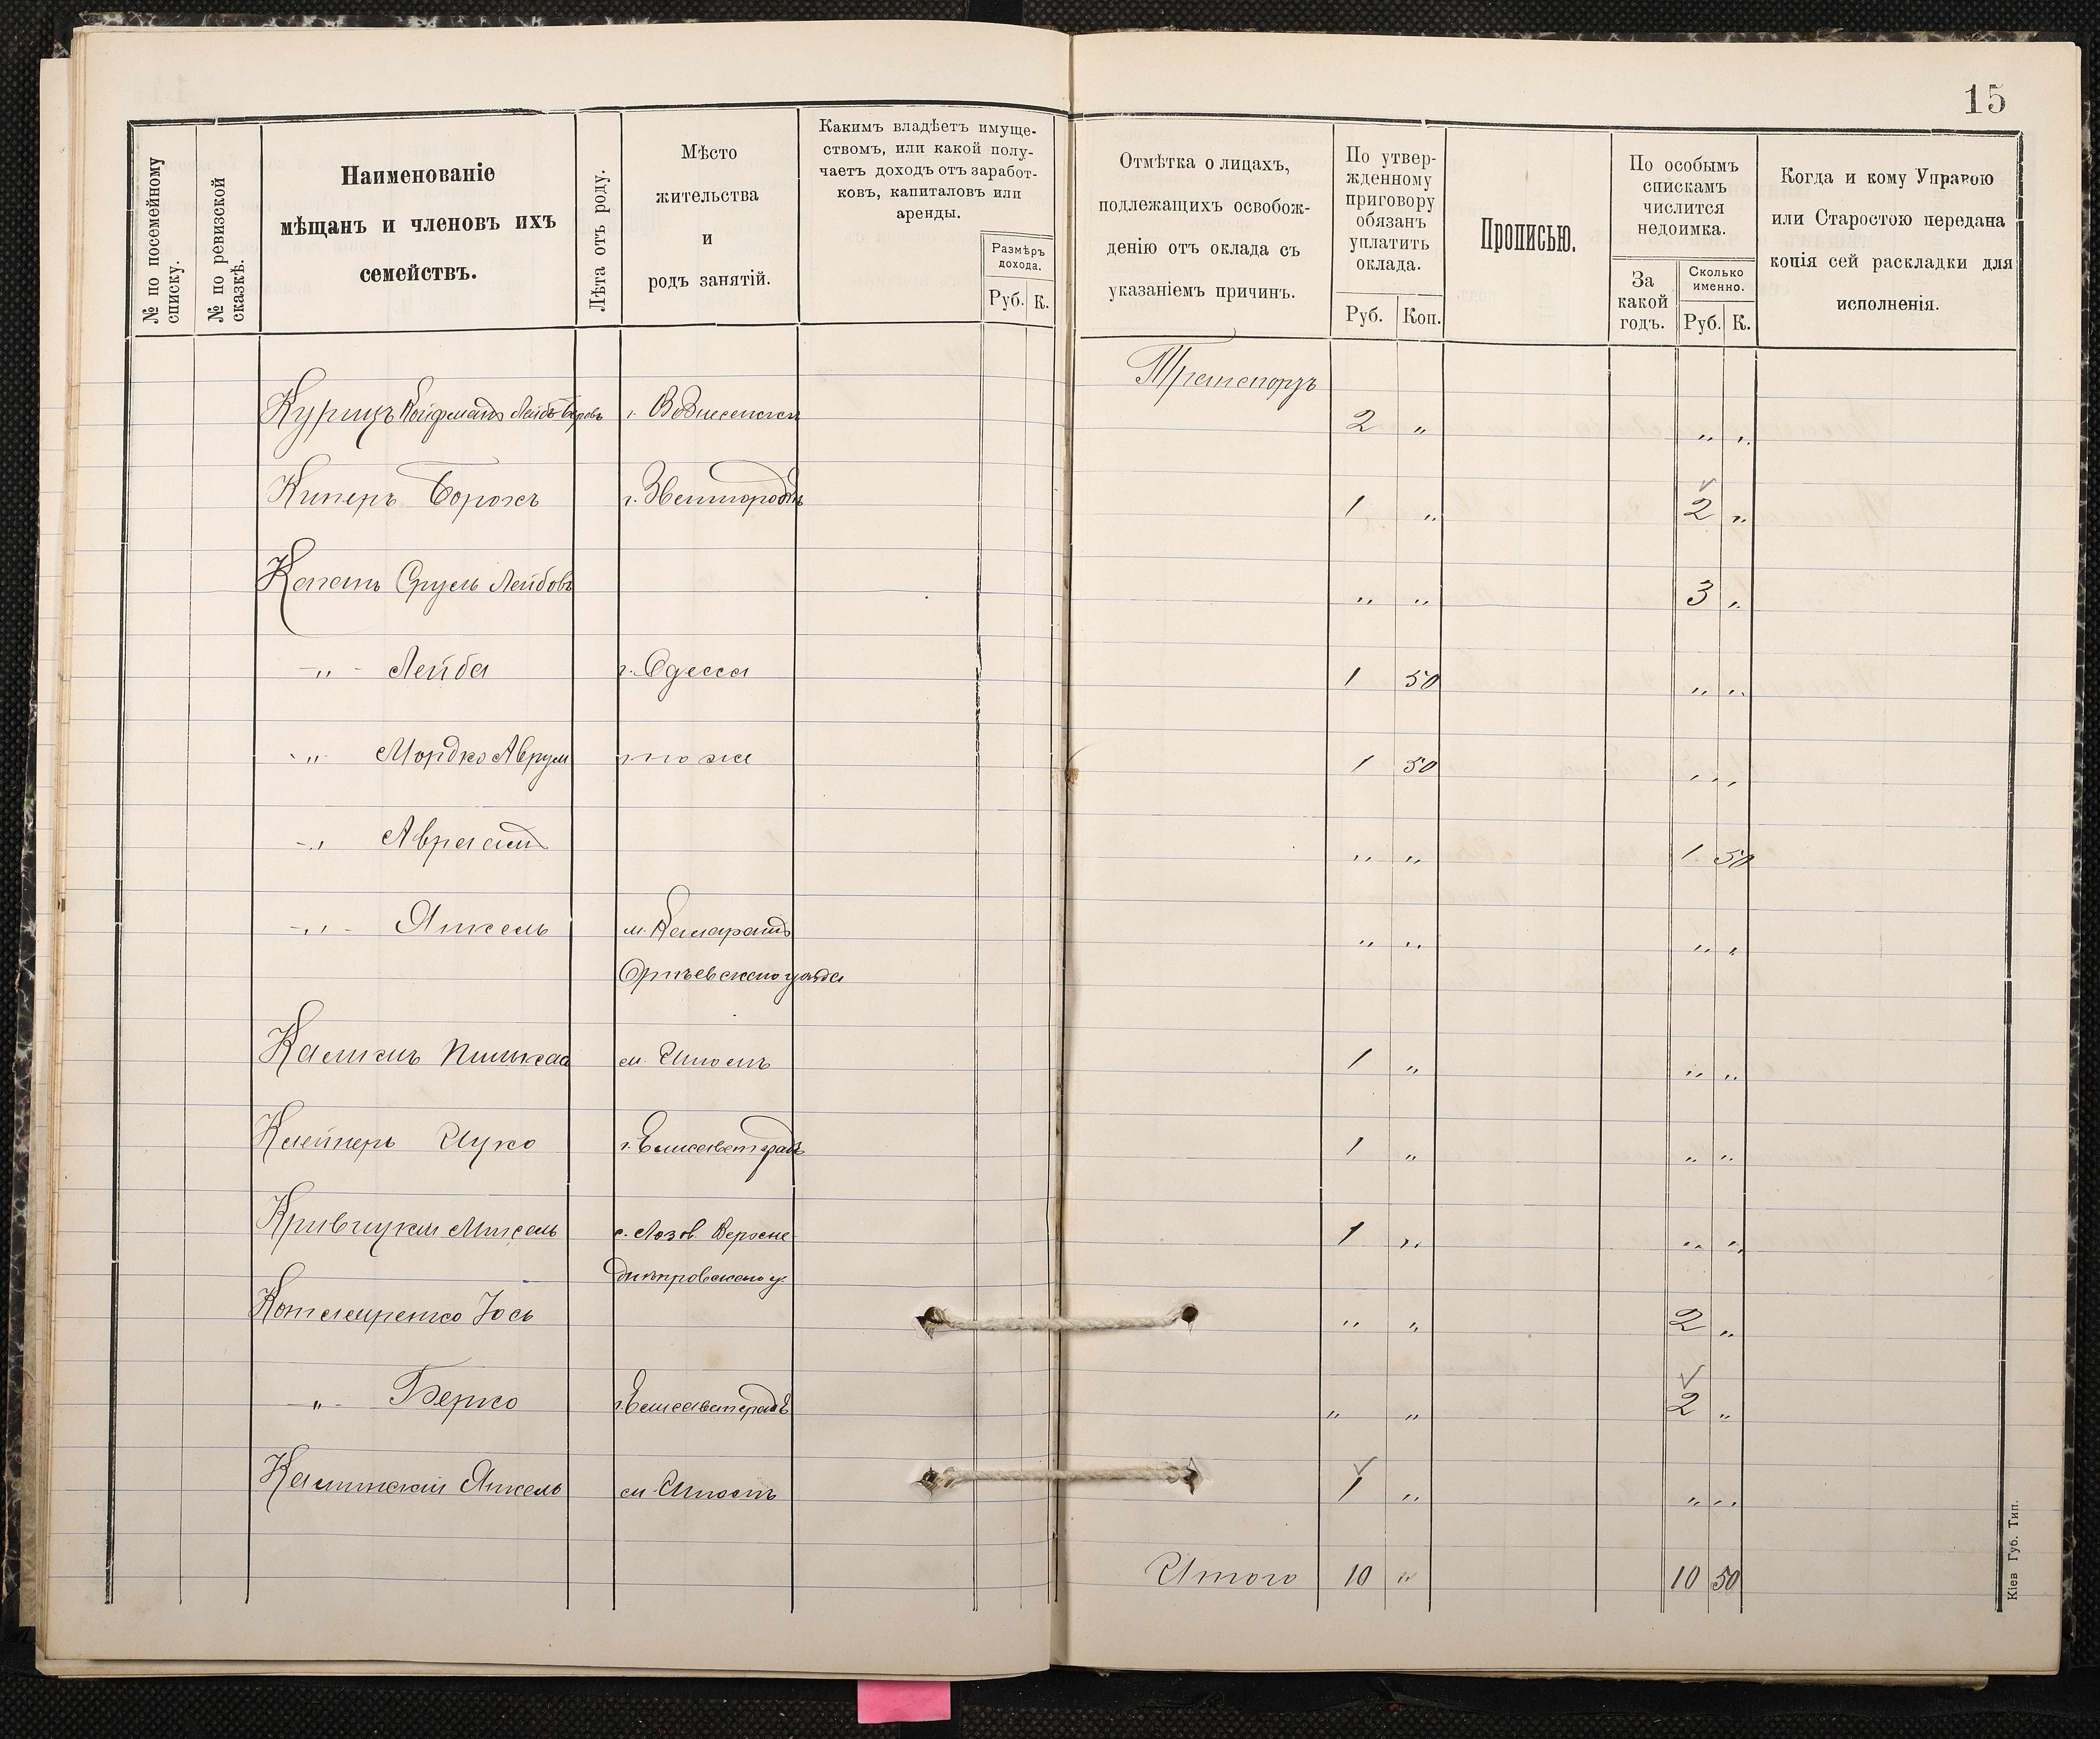 15
№ по посемейному списку.
№ по ревизской сказкѣ.
Наименованіе
мѣщанъ и членовъ ихъ
семействъ.
Лѣта отъ роду.
Мѣсто
жительства
и
родъ занятій.
Какимъ владѣетъ имуще-
ствомъ, или какой полу-
чаетъ доходъ отъ заработ-
ковъ, капиталовъ или
аренды.
Размѣръ
дохода.
Руб. К.
Отмѣтка о лицахъ,
подлежащихъ освобож-
денію отъ оклада съ
указаніемъ причинъ.
По утвер-
жденному
приговору
обязанъ
уплатить
оклада.
Руб. Коп.
Прописью.
По особымъ
спискамъ
числится
недоимка.
За
какой
годъ.
Сколько
именно.
Руб. К.
Когда и кому Управою
или Старостою передана
копія сей раскладки для
исполненія.
Транспортъ
Курицъ Лейбъ г. Вознесенск 2 " " "
Киперъ Борохъ г. Звенигородк 1 " 2 "
Сруль Лейбовъ " " 3 "
-"- Лейба г. Одесса 1 50 " "
-"- Мордко Аврум тоже 1 50 " "
-"- Авраам " " 1 50
-"- Янкель м. " " " "
уѣзда
Пинькас м. 1 " " "
Клейнеръ Ицко г. Елисаветградъ 1 " " "
с. Лозов. Верхне 1 " " "
днѣпровскаго у.
Іось " " 2 "
-"- Берко г. Елисаветградѣ " " 2 "
Калинскій Янкель м. 1 " " "
Итого 10 " 10 50
Кіев Губ. Тип.